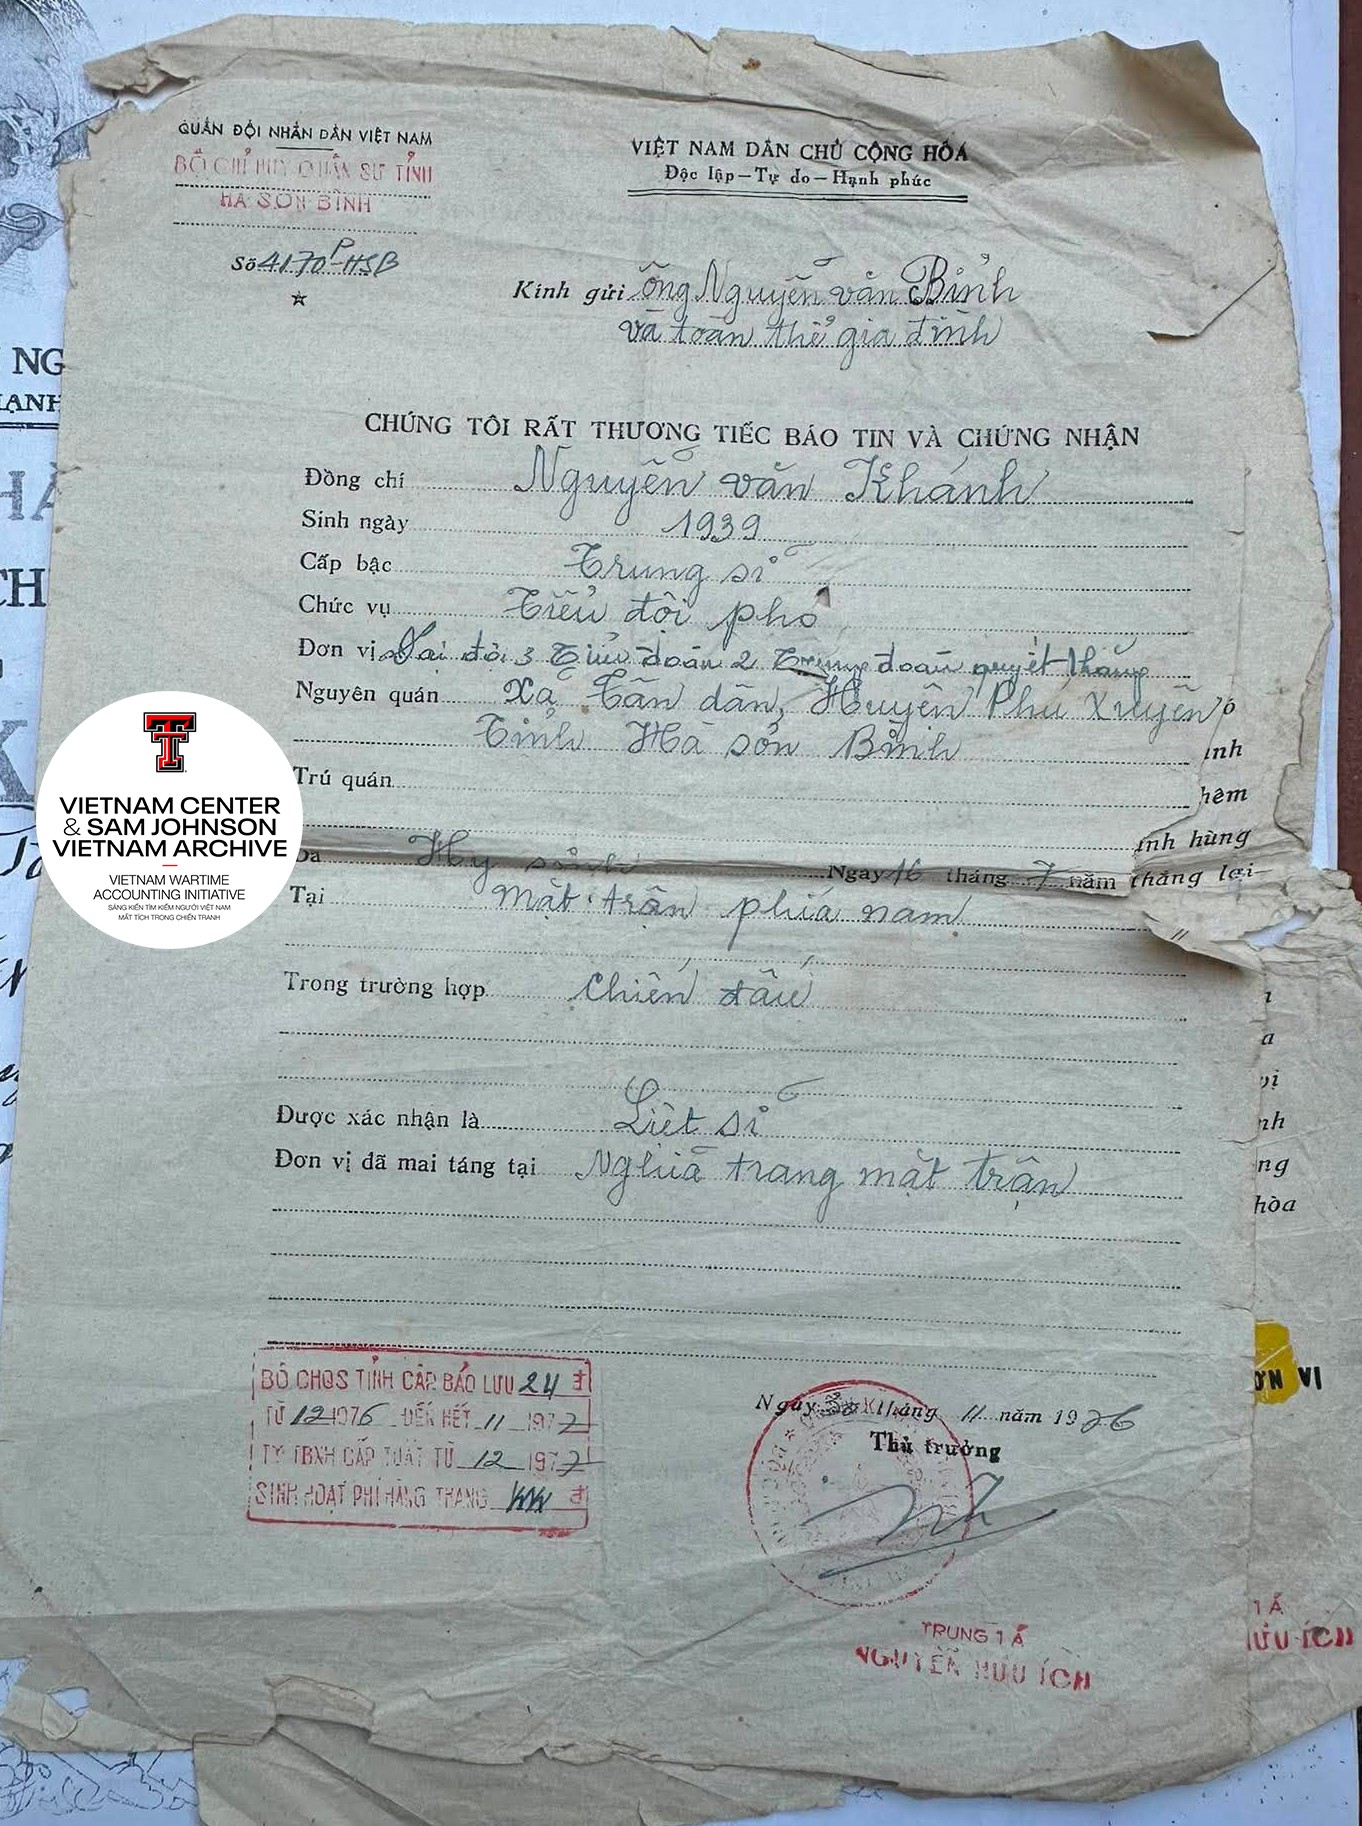 QUÂN ĐỘI NHÂN DÂN VIỆT NAM
BỘ CHỈ HUY QUÂN SỰ TỈNH
HÀ SƠN BÌNH
Số 4170 P-HSB
VIỆT NAM DÂN CHỦ CỘNG HÒA
Độc lập — Tự do — Hạnh phúc
Kính gửi ông Nguyễn văn Bỉnh
và toàn thể gia đình
CHÚNG TÔI RẤT THƯƠNG TIẾC BÁO TIN VÀ CHỨNG NHẬN
Đồng chí Nguyễn văn Khánh
Sinh ngày 1939
Cấp bậc Trung sĩ
Chức vụ Tiểu đội phó
Đơn vị Đại đội 3 Tiểu đoàn 2 Trung đoàn quyết thắng
Nguyên quán Xã Tân dân, Huyện Phú Xuyên
Tỉnh Hà sơn Bình
Trú quán
Đã Hy sinh Ngày 16 tháng 7 năm
Tại mặt trận phía nam
Trong trường hợp chiến đấu
Được xác nhận là Liệt sĩ
Đơn vị đã mai táng tại Nghĩa trang mặt trận
BỘ CHQS TỈNH CẤP BẢO LƯU 24 đ
TỪ 12 1976 ĐẾN HẾT 11 1977
TY TBXH CẤP TUẤT TỪ 12 1977
SINH HOẠT PHÍ HÀNG THÁNG đ
Ngày 30 tháng 11 năm 1976
Thủ trưởng
TRUNG TÁ
NGUYỄN HỮU ÍCH
NG
HẠNH
CH
inh
hêm
ảnh hùng
thắng lợi
nh
ng
hòa
ƠN VỊ
TÁ
HỮU ÍCH
VIETNAM CENTER
& SAM JOHNSON
VIETNAM ARCHIVE
VIETNAM WARTIME
ACCOUNTING INITIATIVE
SÁNG KIẾN TÌM KIẾM NGƯỜI VIỆT NAM
MẤT TÍCH TRONG CHIẾN TRANH